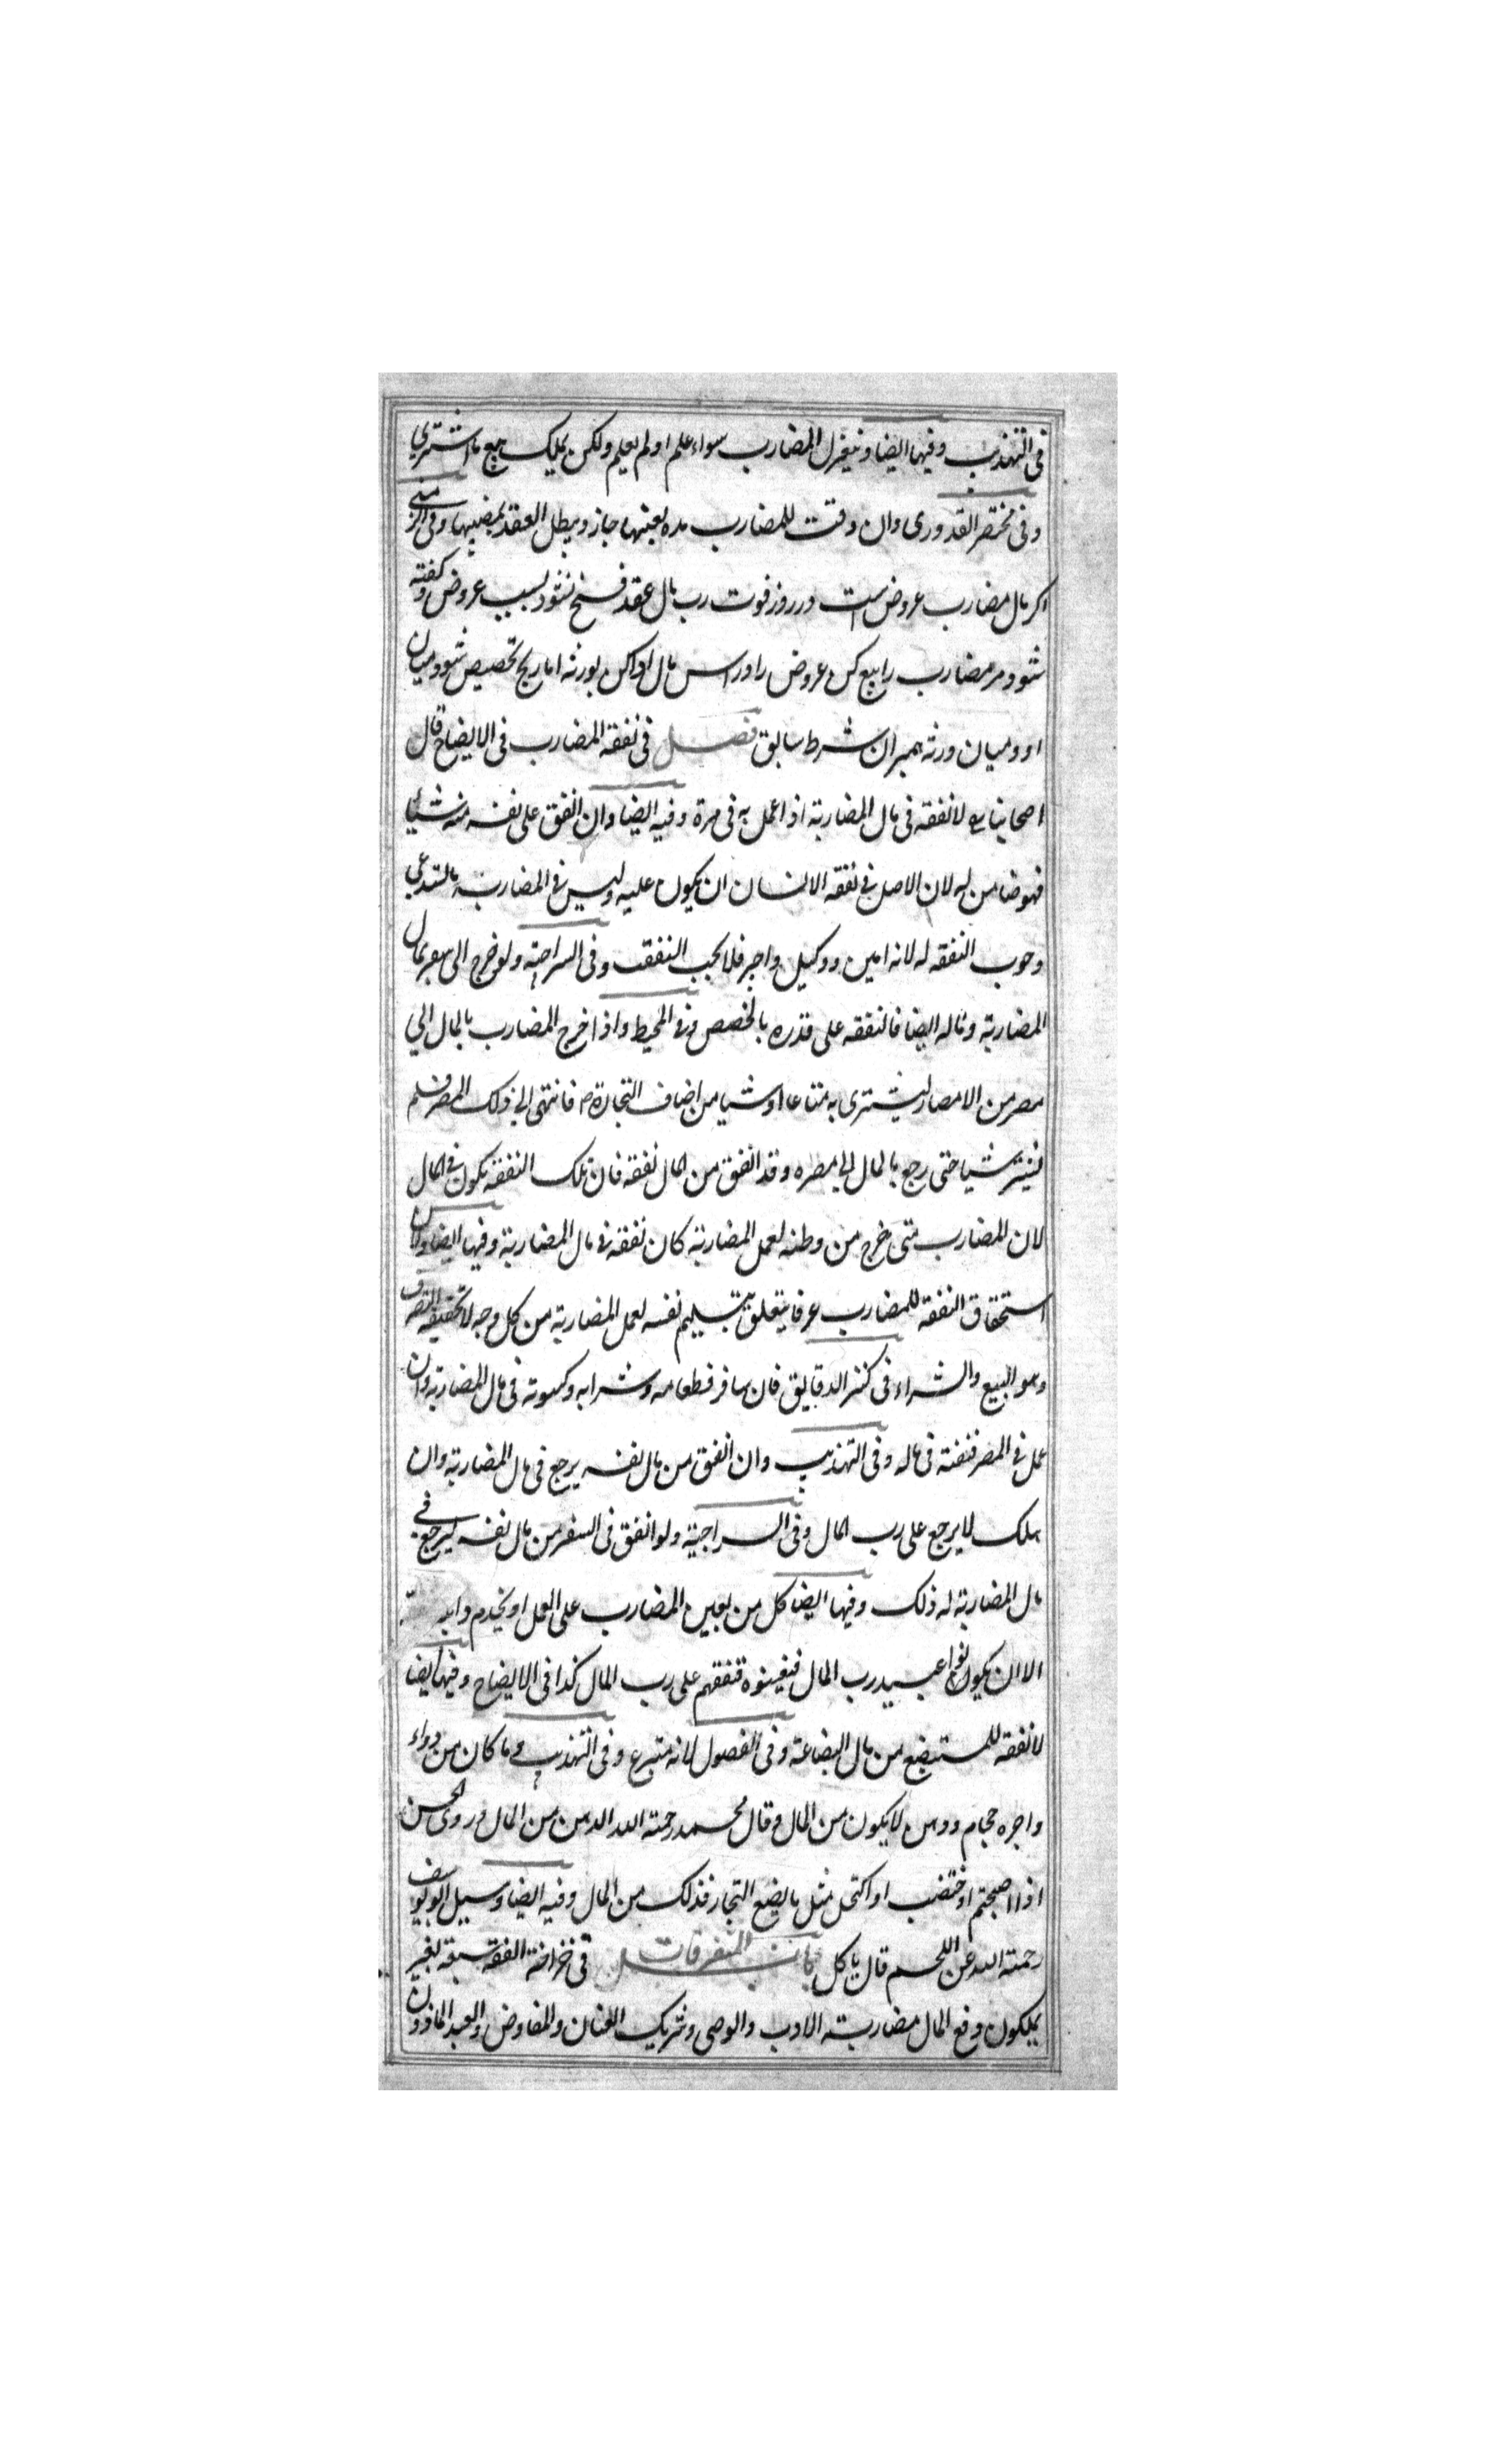 فی التهذیب وفیها ایضا وینعزل المضارب سواء علم او لم یعلم ولکن یملک بیع ما اشتری
وفی مختصر القدوری وان وقت للمضارب مدة بعینها جاز ویبطل العقد بمضیها وفی
اکر مال مضارب عروض است در روز فوت رب مال عقد فسخ نشود بسبب عروض وکفته
شود مر مضارب را بیع کن عروض را و راس مال ادا کن بورثه اما ربح تخصیص شود میان
او و میان ورثه بمیران شرط سابق فصل فی نفقه المضارب فی الایضاح قال
اصحابنا لا نفقه فی مال المضاربة اذا عمل به فی مصره وفیه ایضا وان انفق علی نفسه منه شیئا
فهو ضامن له لان الاصل فی نفقه الانسان ان یکون علیه ولیس فی المضاربة ما یستدعی
وجوب النفقه له لانه امین ووکیل واجیر فلا یجب النفقت وفی السراجیة ولو خرج الی سفر بمال
المضاربة وماله ایضا فالنفقه علی قدره بالحصص وفی المحیط واذا خرج المضارب بالمال الی
مصر من الامصار لیشتری به متاعا او شیا من اصناف التجارة فانتهی الی ذلک المصر فلم
یشتر شیا حتی رجع بالمال الی مصره وقد انفق من المال نفقه فان تلک النفقة تکون فی المال
لان المضارب متی خرج من وطنه لعمل المضاربة کان نفقته فی مال المضاربة وفیها ایضا وان
استحقاق النفقه للمضارب عرفا یتعلق بتسلیم نفسه لعمل المضاربة من کل وجه لا تحقیقه التصرف
وهو البیع والشراء فی کنز الدقایق فان سافر فطعامه وشرابه وکسوته فی مال المضاربة وان
عمل فی المصر فنفقته فی ماله وفی التهذیب وان انفق من مال نفسه یرجع فی مال المضاربة وان
هلک لا یرجع علی رب المال وفی السراجیة ولو انفق فی السفر من مال نفسه لیرجع فی
مال المضاربة له ذلک وفیها ایضا کل من یعین المضارب علی العمل او یخدم دابه
الا ان یکونوا عبید رب المال فیعینوه فنفقتهم علی رب المال کذا فی الایضاح وفیها ایضا
لا نفقه للمستبضع من مال البضاعة وفی الفصول لانه متبرع وفی التهذیب وما کان من دواء
واجره حجام ودهن لا یکون من المال وقال محمد رحمة الله الدهن من المال وروی الحسن
اذا احتجم او اختضب او اکتحل مثل ما یصنع التجار فذلک من المال وفیه ایضا وسیل ابو یوسف
رحمة الله عن اللحم قال یاکل المتفرقات فی خزانة الفقه سبعة نفر
یملکون دفع المال مضاربة الاب والوصی وشریک العنان والمفاوض والعبد الماذون